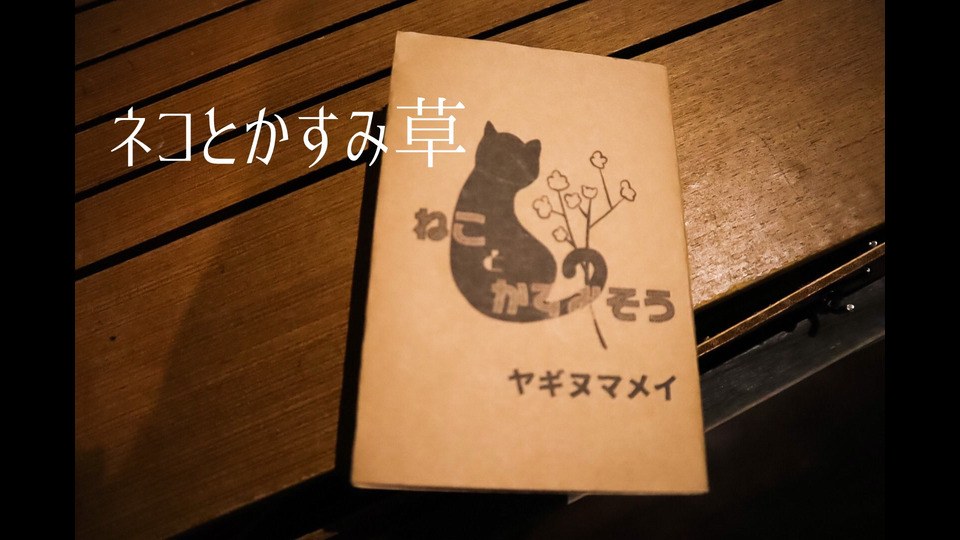 ネコとかすみ草
ねこ
と
かすみそう
ヤギヌマメイ